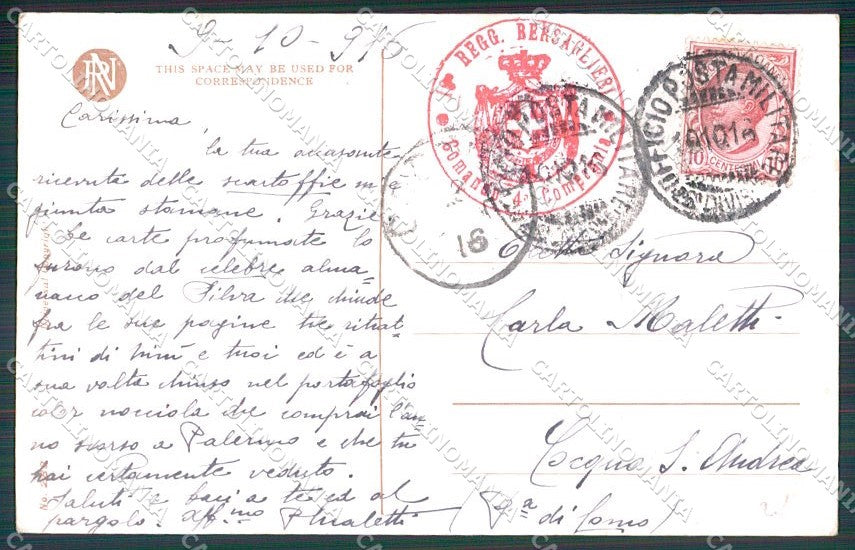 9-10-916
RN
THIS SPACE MAY BE USED FOR
CORRESPONDENCE
REGG. BERSAGLIERI
Comando 4ª Compagnia
UFFICIO POSTA MILITARE
10 CENTESIMI 10
16
Carissima
la tua
ricevuta delle scartoffie m'è
giunta stamane. Grazie
Le carte profumate lo
furono dal celebre alma=
nacco del Silva che chiude
fra le sue pagine tre ritrat=
tini di Mimì e tuoi ed è a
sua volta chiuso nel portafoglio
color nocciola che comprai l'an=
no scorso a Palermo e che tu
hai certamente veduto.
Saluti e baci a te ed al
pargolo. Aff.mo Maletti
Signora
Carla Maletti
Cocquio S. Andrea
di Como)
CARTOLINOMANIA